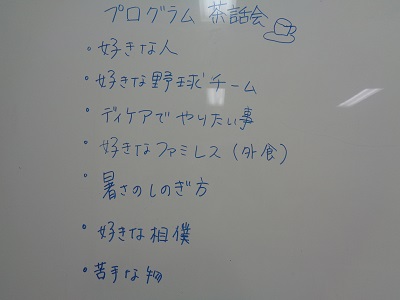 プログラム 茶話会
・好きな人
・好きな野球チーム
・ディケアでやりたい事
・好きなファミレス(外食)
・暑さのしのぎ方
・好きな相撲
・苦手な物